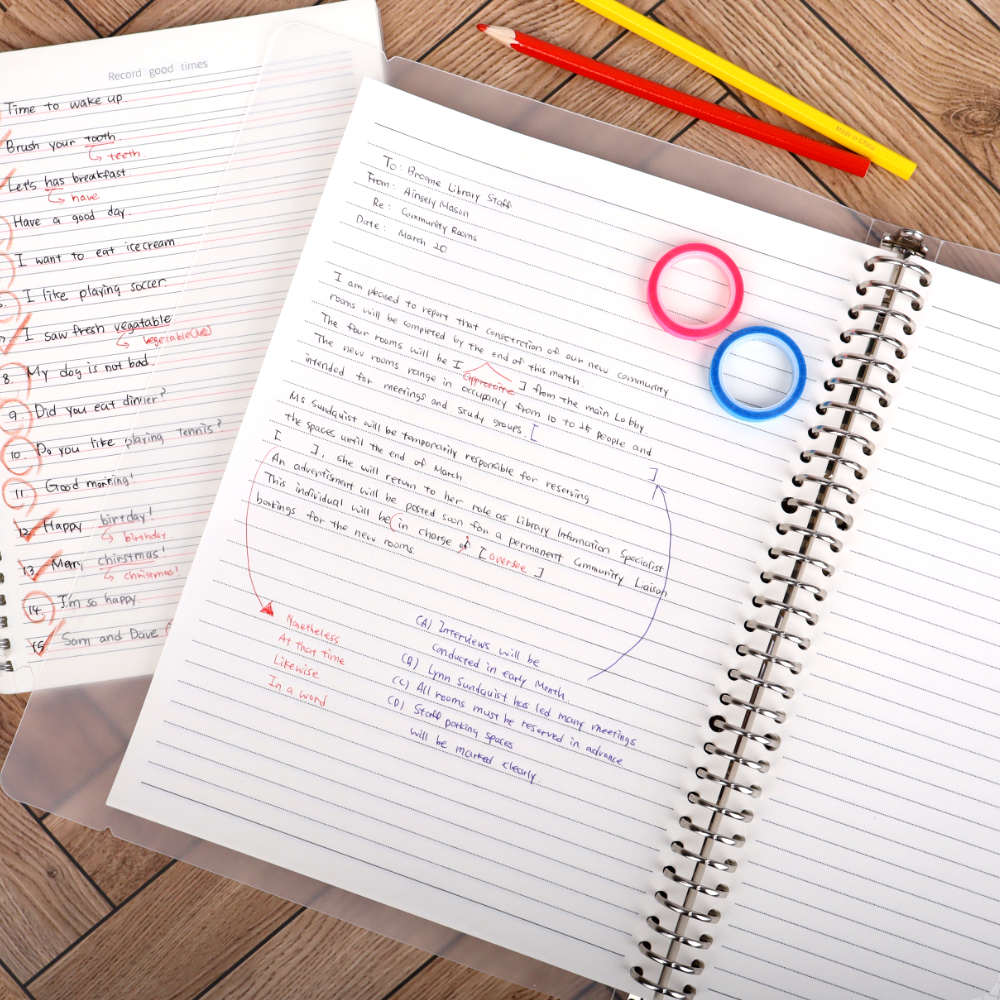 Record good times
Time to wake up.
Brush your tooth.
teeth.
Let's has breakfast
have
Have a good day.
I want to eat icecream
I like playing soccer
I saw fresh vegatable
vegetable(les)
8. My dog is not bad.
9. Did you eat dinner?
10. Do you like playing Tennis?
11. Good morning!
12. Happy birtday!
birthday
13. Merry chirstmas!
christmas!
14. I'm so happy.
15. Sam and Dave
To: Broome Library Staff
From: Ainsely Mason
Re: Community Rooms
Date: March 20
I am pleased to report that constrction of our new community
rooms will be completed by the end of this month.
The four rooms will be [ ] from the main Lobby
The new rooms range in occupancy from 10 to 25 people and
intended for meetings and study groups. [
]
Ms Sundquist will be temporarily responsible for reserving
the spaces until the end of March
[ ], she will return to her role as Library Information Specialist
An advertisment will be posted soon for a permanent Community Liaison
This individual will be in charge of [ oversee ]
bookings for the new rooms
Nonetheless
At that time
Likewise
In a word
(A) Interviews will be
conducted in early Month
(B) Lynn Sundquist has led many meetings
(C) All rooms must be reserved in advance
(D) Staff parking spaces
will be marked clearly.
Made in China